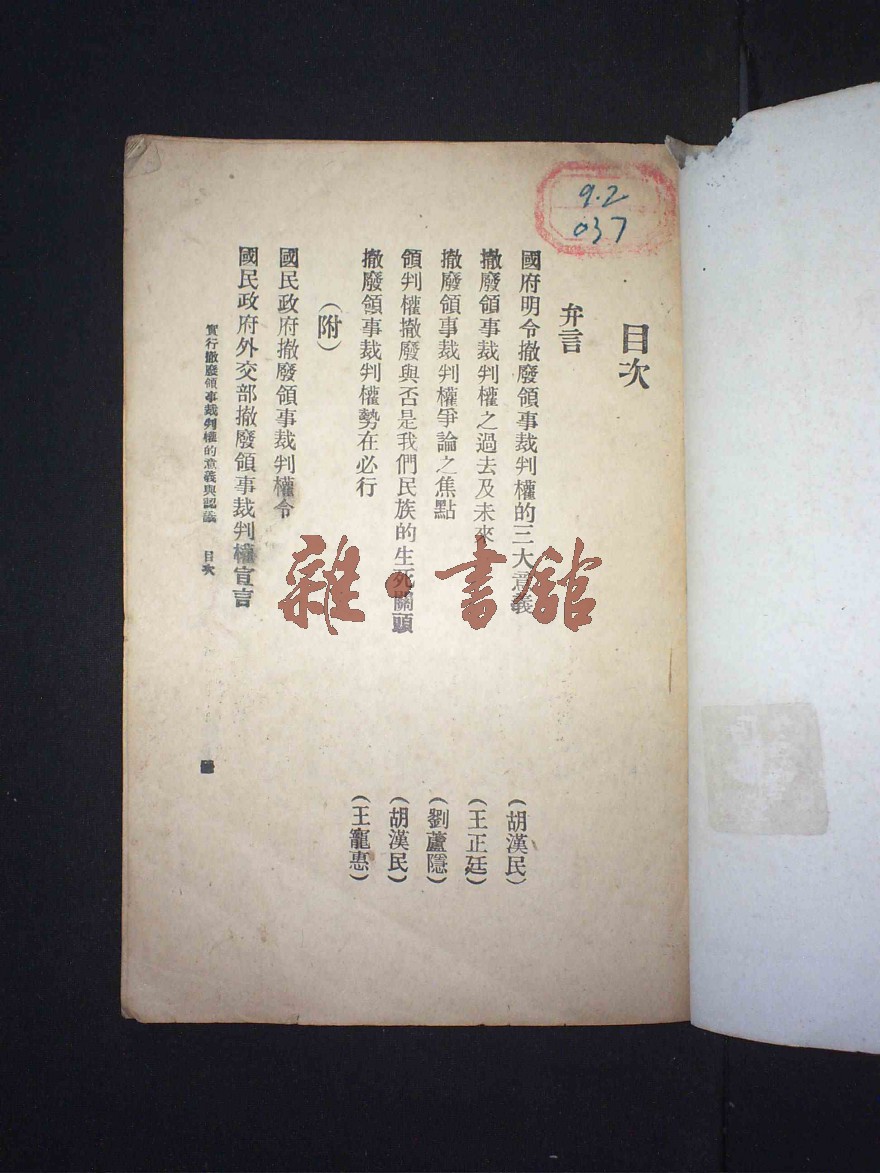 目次
弁言
國府明令撤廢領事裁判權的三大意義 (胡漢民)
撤廢領事裁判權之過去及未來 (王正廷)
撤廢領事裁判權爭論之焦點 (劉蘆隱)
領判權撤廢與否是我們民族的生死關頭 (胡漢民)
撤廢領事裁判權勢在必行 (王寵惠)
(附)
國民政府撤廢領事裁判權令
國民政府外交部撤廢領事裁判權宣言
實行撤廢領事裁判權的意義與認識 目次
9.2
037
雜·書館